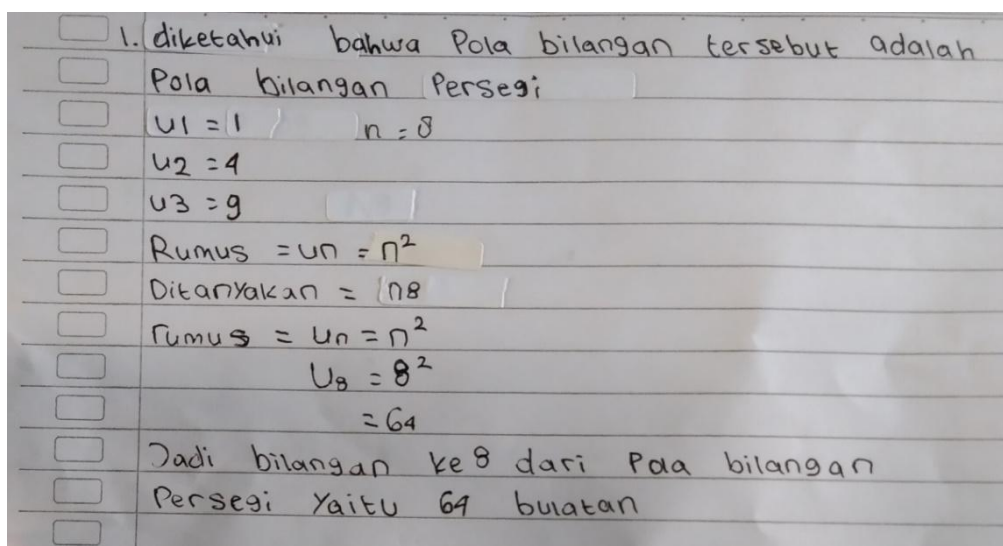 1. diketahui bahwa Pola bilangan tersebut adalah
Pola bilangan Persegi
U1 = 1 n = 8
U2 = 4
U3 = 9
Rumus = Un = n²
Ditanyakan = n8
rumus = Un = n²
U₈ = 8²
= 64
Jadi bilangan ke 8 dari Pola bilangan
Persegi Yaitu 64 bulatan